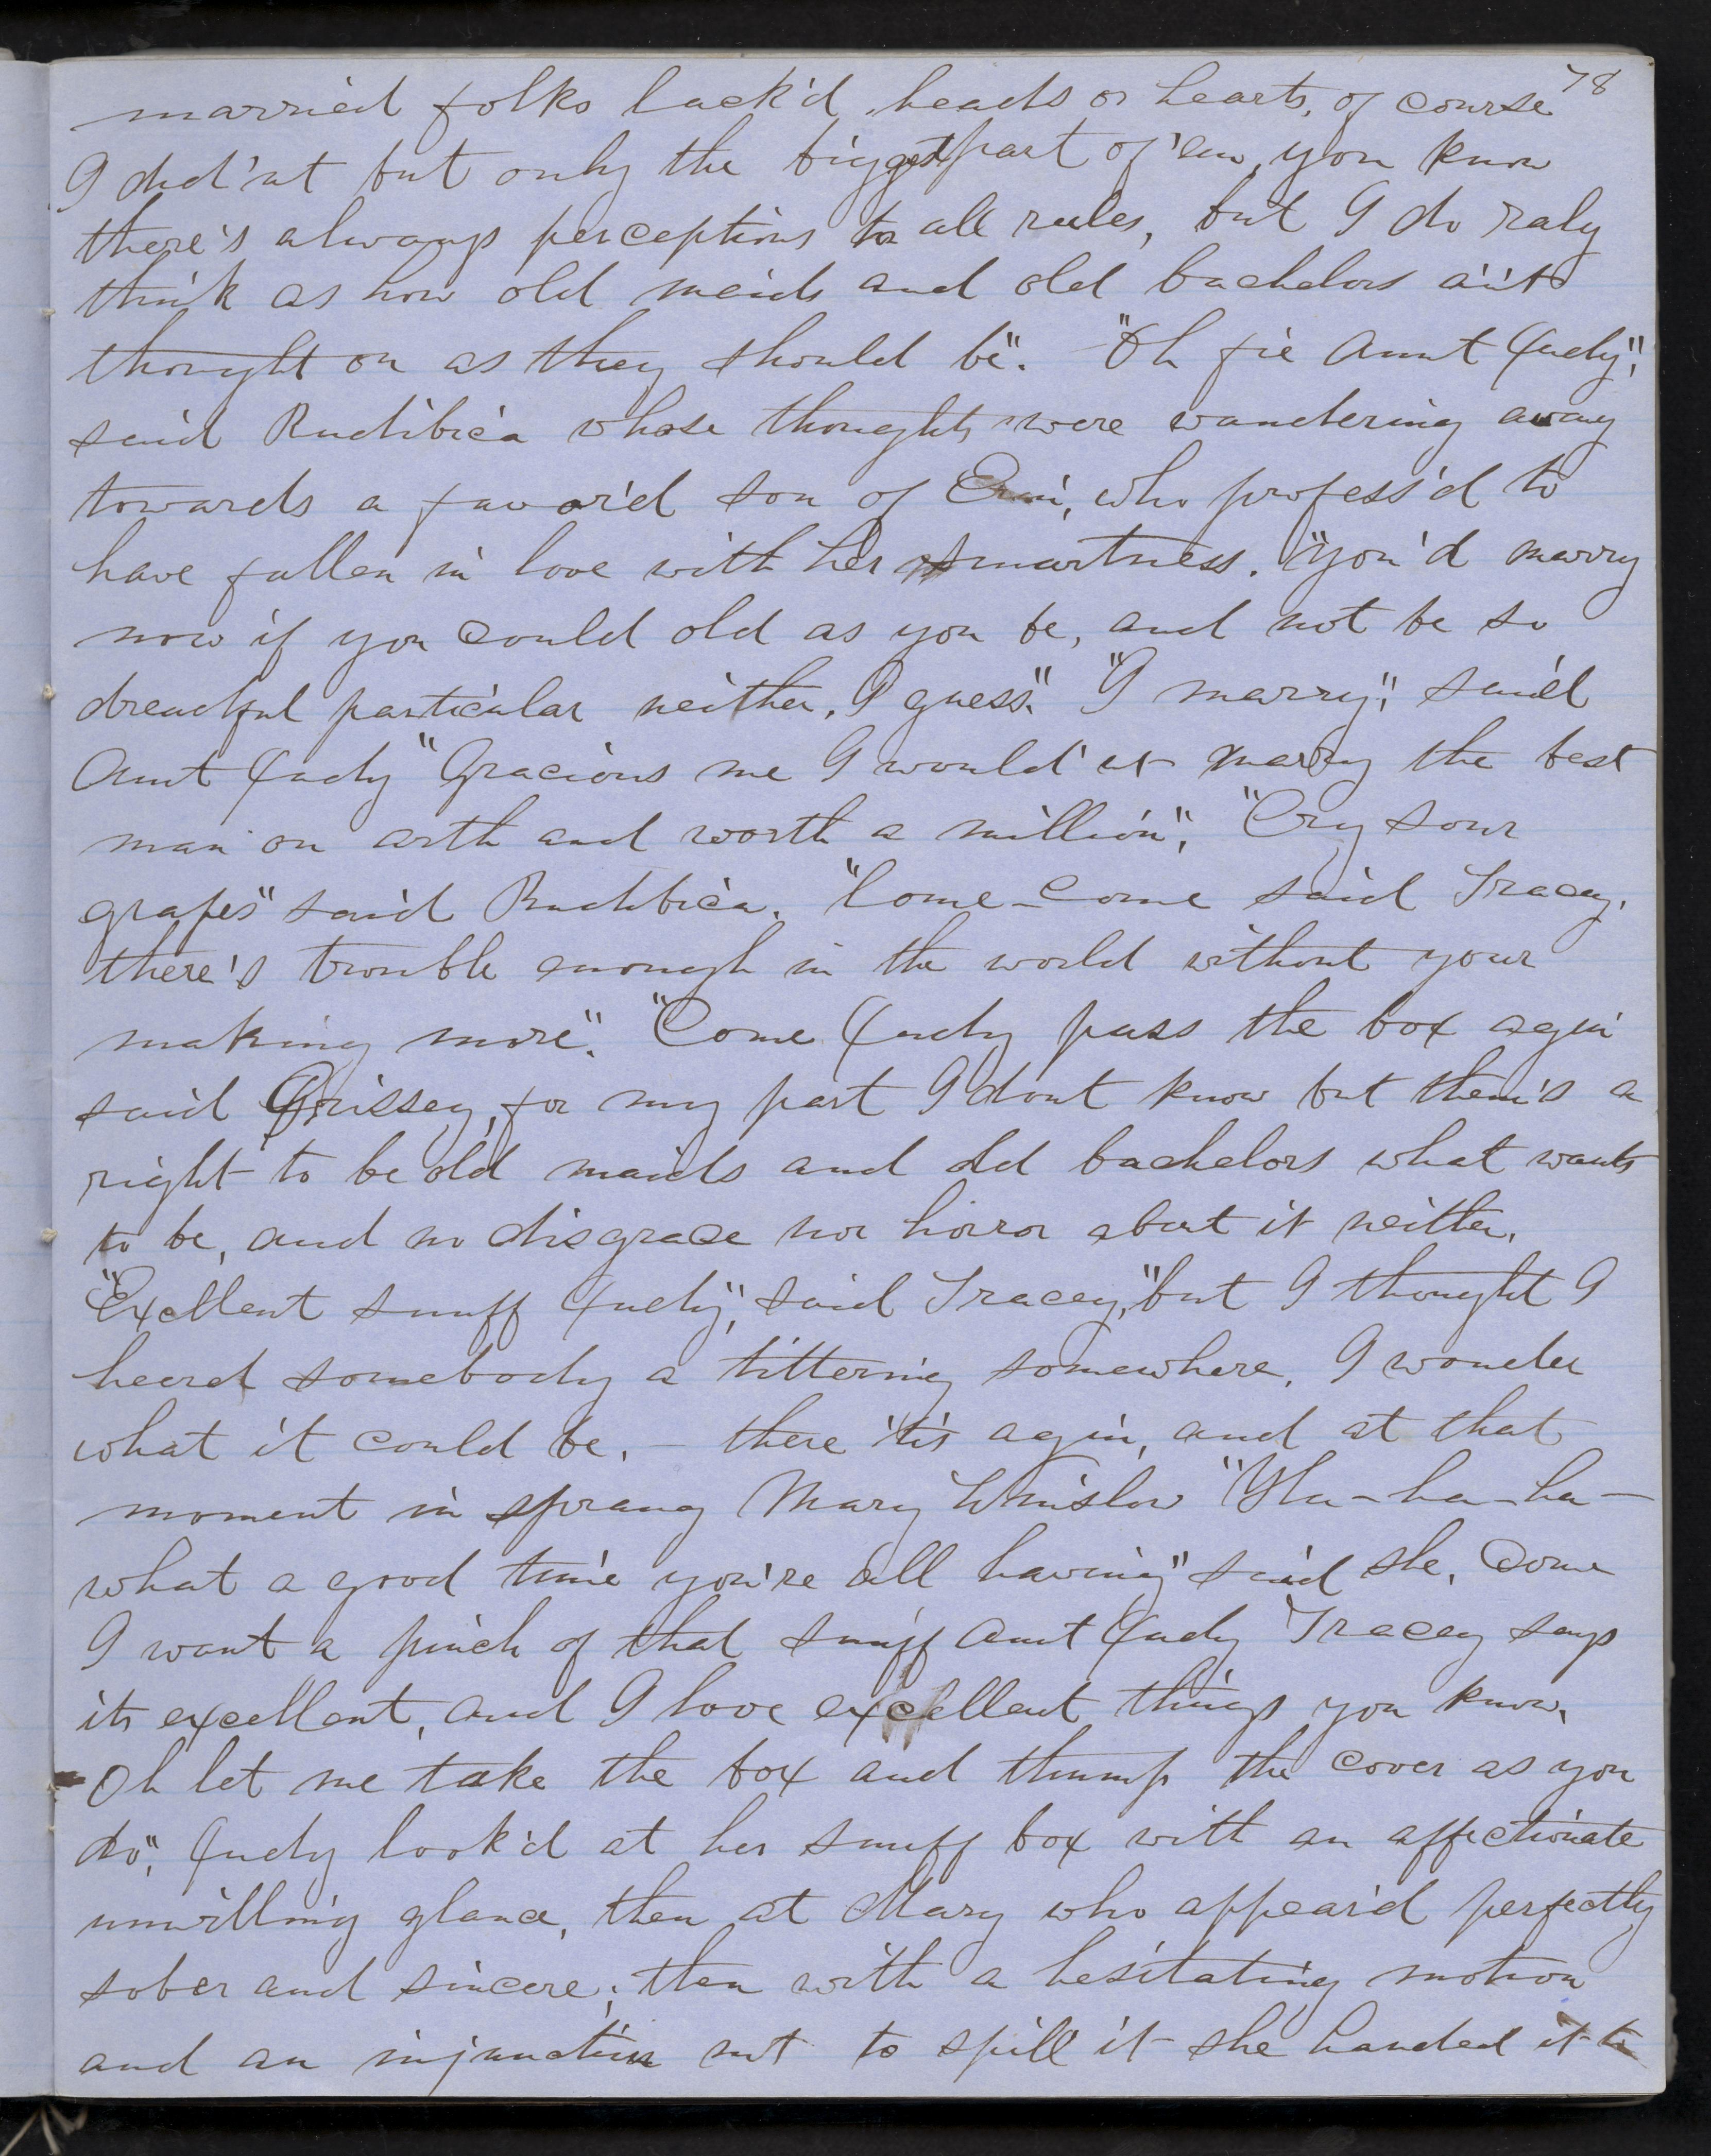 78
married folks lack'd heads or hearts, of course
I did'nt but only the biggest part of 'em, you know
there's always perceptions to all rules, but I do raly
think as how old maids and old bachelors ain't
thought on as they should be". "Oh fie Aunt Judy",
said Rudibica whose thoughts were wandering away
towards a favor'd son of Erin, who profess'd to
have fallen in love with her smartness. "You'd marry
now if you could old as you be, and not be so
dreadful particular neither, I guess". "I marry", said
Aunt Judy "Gracious me I would'nt marry the best
man on arth and worth a million", "Cry sour
grapes" said Rudibica. "Come-come said Tracey,
there's trouble enough in the world without your
making more". "Come Judy pass the box agin
said Drissey, for my part I dont know but them's a
right to be old maids and old bachelors what wants
to be, and no disgrace nor horror about it neither.
"Excellent snuff Judy", said Tracey, "but I thought I
heerd somebody a tittering somewhere, I wonder
what it could be. — there 'tis agin, and at that
moment in sprang Mary Winslow "Ha-ha-ha-
what a good time you're all having" said she. Come
I want a pinch of that snuff Aunt Judy Tracey says
its excellent, and I love excellent things you know,
Oh let me take the box and thump the cover as you
do", Judy look'd at her snuff box with an affectionate
unwilling glance, then at Mary who appear'd perfectly
sober and sincere; then with a hesitating motion
and an injunction not to spill it she handed it to